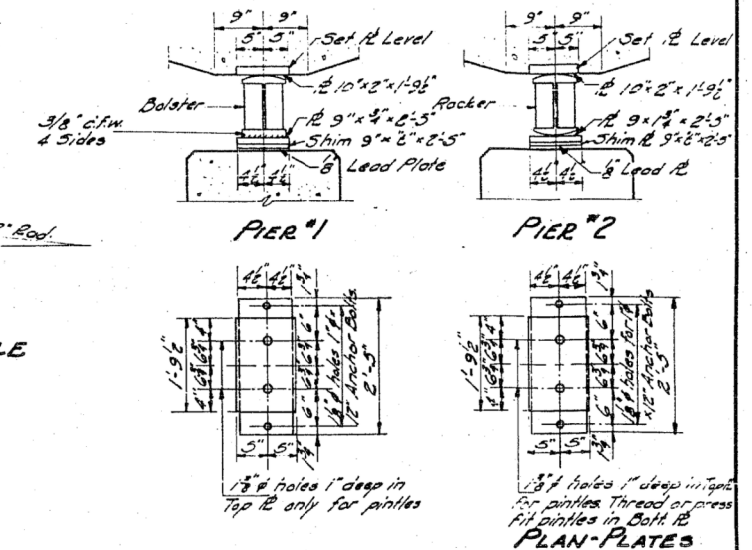 9" 9"
5" 5"
Set ⅊ Level
⅊ 10"x2"x1'-9½"
Bolster
⅊ 9"x¾"x2'-5"
3/8" c.f.w.
4 Sides
Shim 9"x½"x2'-5"
⅛" Lead Plate
4½" 4½"
PIER #1
9" 9"
5" 5"
Set ⅊ Level
⅊ 10"x2"x1'-9½"
Rocker
⅊ 9x1¾"x2'-5"
Shim ⅊ 9"x½"x2'-5"
⅛" Lead ⅊
4½" 4½"
PIER #2
Rod.
LE
4½" 4½"
1¾"
1'-9½"
4" 6¾" 6¾" 4"
6" 6¾" 6¾" 6"
1⅛"ø holes 1"ø x
12" Anchor Bolts
2'-5"
5" 5"
1¾"
1⅜"ø holes 1" deep in
Top ⅊ only for pintles
4½" 4½"
1¾"
1'-9½"
4" 6¾" 6¾" 4"
6" 6¾" 6¾" 6"
1⅛"ø holes for 1"ø
x12" Anchor Bolts
2'-5"
5" 5"
1¾"
1⅜"ø holes 1" deep in Top ⅊
for pintles. Thread or press
fit pintles in Bott. ⅊
PLAN-PLATES